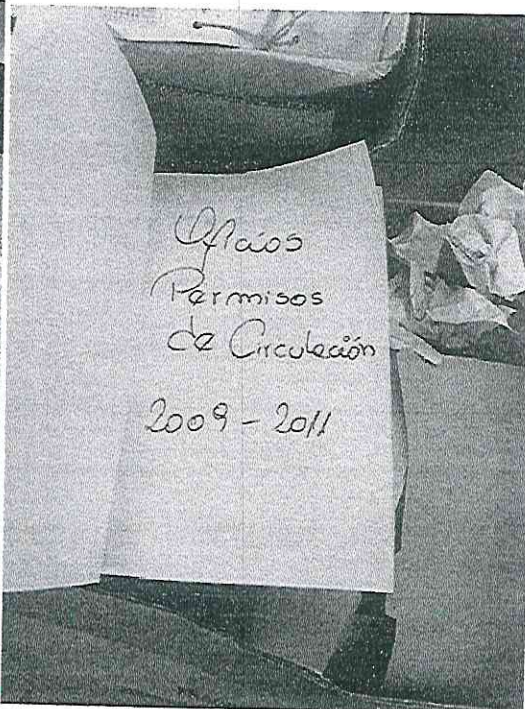 Oficios
Permisos
de Circulación
2009 - 2011